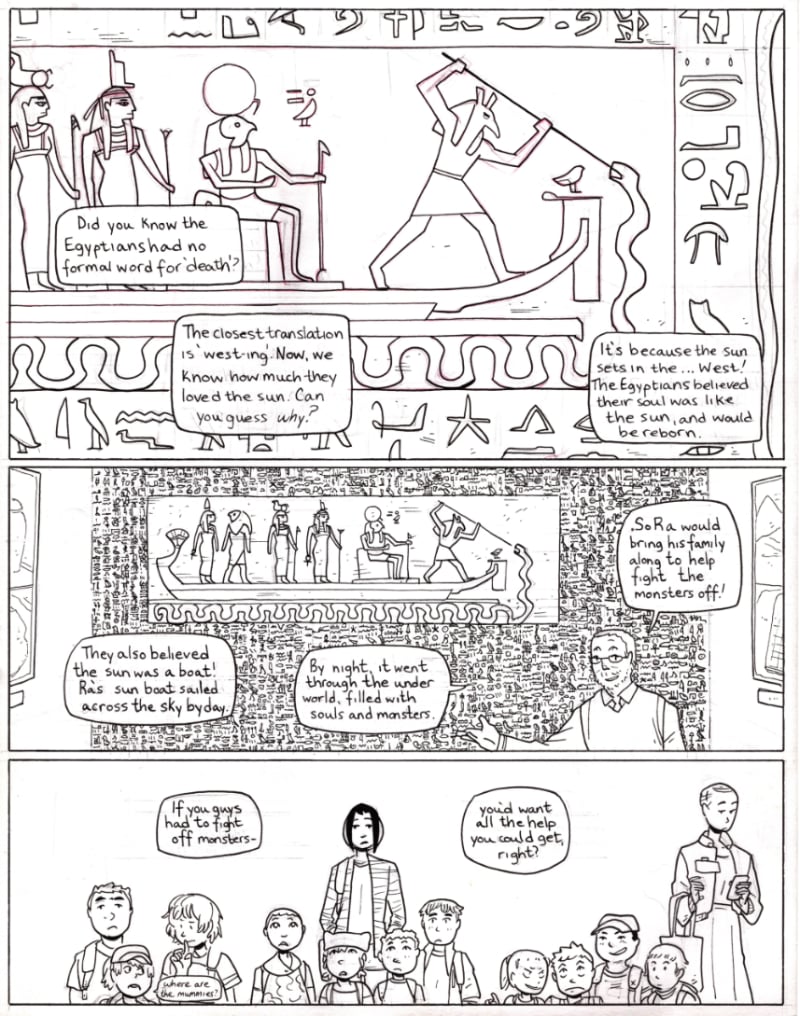 Did you know the
Egyptians had no
formal word for 'death'?
The closest translation
is 'west-ing'. Now, we
know how much they
loved the sun. Can
you guess why?
It's because the sun
sets in the ... West!
The Egyptians believed
their soul was like
the sun, and would
be reborn.
So Ra would
bring his family
along to help
fight the
monsters off!
They also believed
the sun was a boat!
Ra's sun boat sailed
across the sky by day.
By night, it went
through the under
world, filled with
souls and monsters.
If you guys
had to fight
off monsters-
you'd want
all the help
you could get,
right?
where are
the mummies?